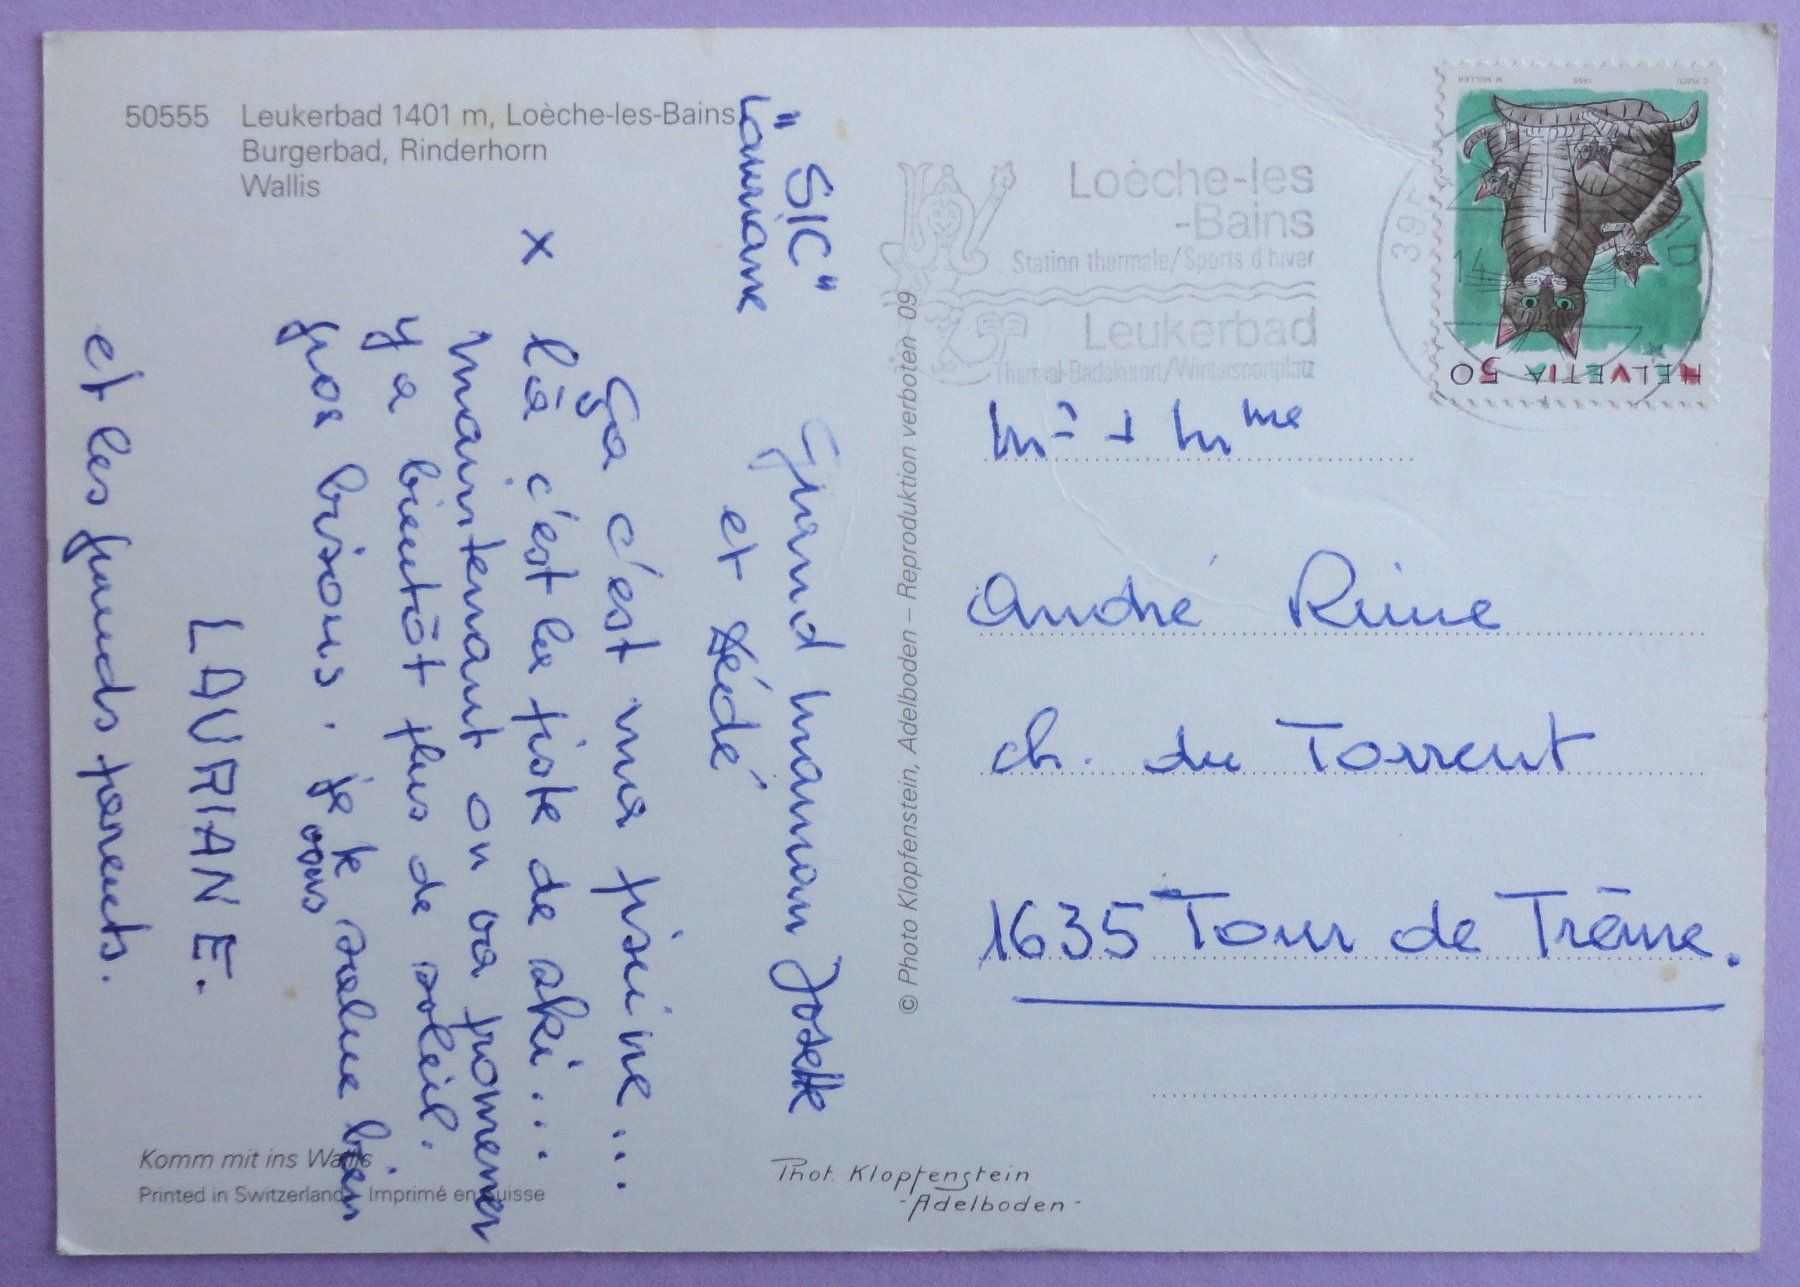 50555 Leukerbad 1401 m, Loèche-les-Bains
Burgerbad, Rinderhorn
Wallis
"SIC"
Lauriane
Grand maman Josette
et Dédé
Ça c'est ma piscine...
x là c'est la piste de ski...
maintenant on va promener
y a bientôt plus de soleil.
gros bisous. je te salue bien
vous
LAURIANE.
et les grands parents.
Komm mit ins Wallis
Printed in Switzerland Imprimé en Suisse
© Photo Klopfenstein, Adelboden – Reproduktion verboten 09
Phot. Klopfenstein
-Adelboden-
Loèche-les
-Bains
Station thermale/Sports d'hiver
Leukerbad
Thermal-Badekurort/Wintersportplatz
3954
14
HELVETIA 50
C. PIATTI 1990 M. MÜLLER
Mr + Mme
André
ch. du Torrent
1635 Tour de Trême.